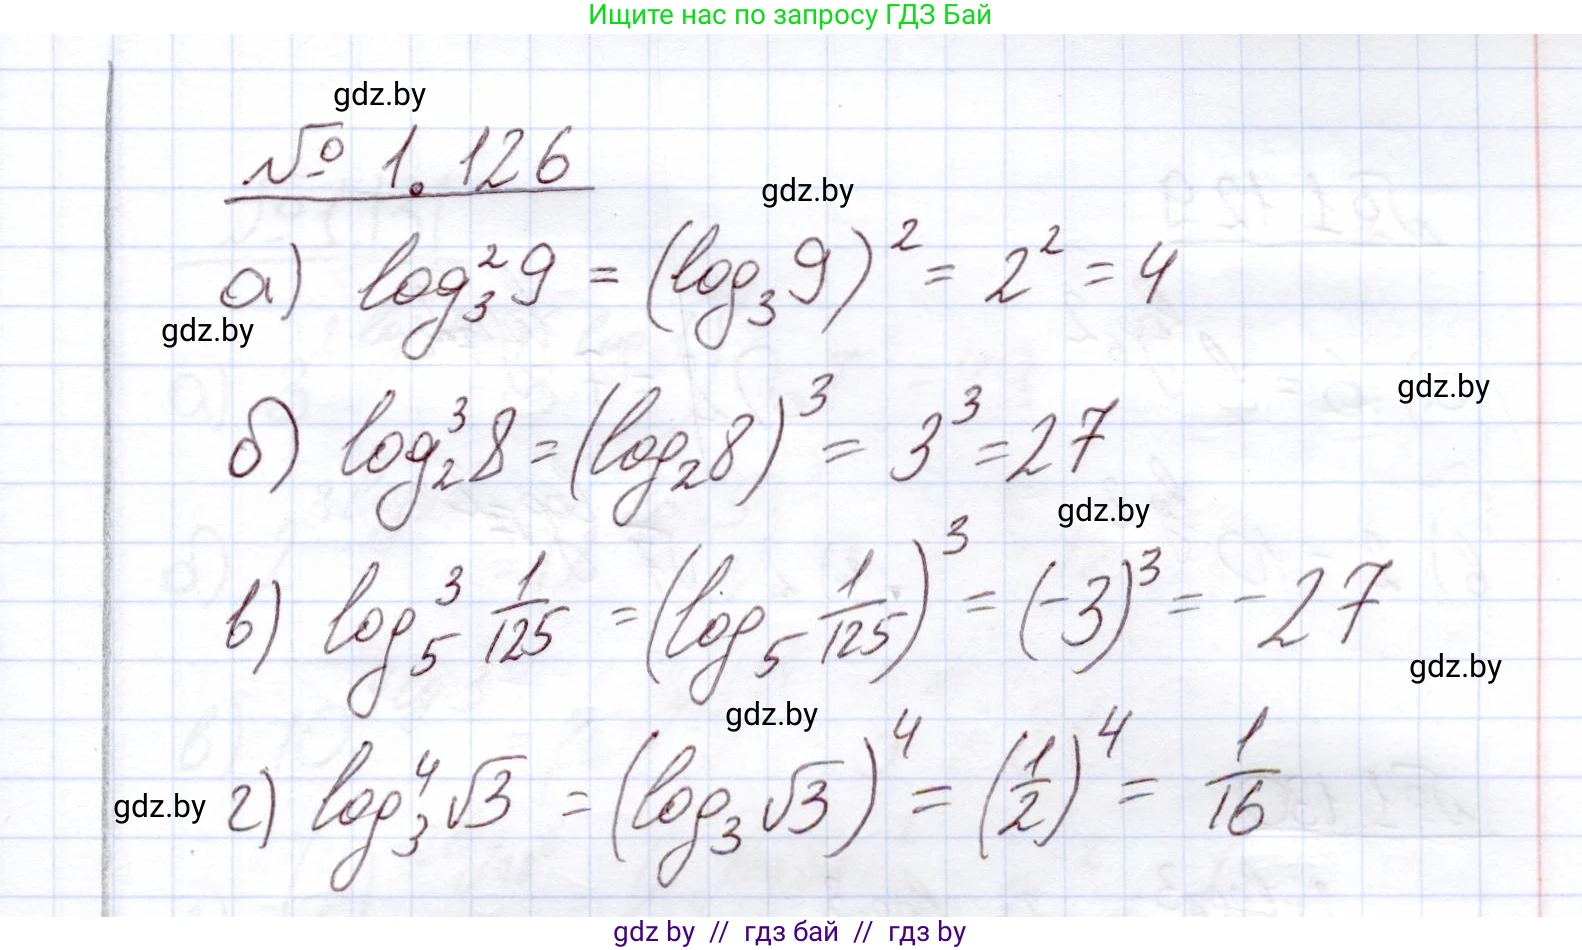 Ищите нас по запросу ГДЗ Бай
gdz.by
№ 1.126
gdz.by
а) log₃²9 = (log₃9)² = 2² = 4
gdz.by
gdz.by
б) log₂³8 = (log₂8)³ = 3³ = 27
gdz.by
в) log₅³ 1/125 = (log₅ 1/125)³ = (-3)³ = -27
gdz.by
gdz.by
г) log₃⁴√3 = (log₃√3)⁴ = (1/2)⁴ = 1/16
gdz.by
gdz by // гдз бай // гдз by